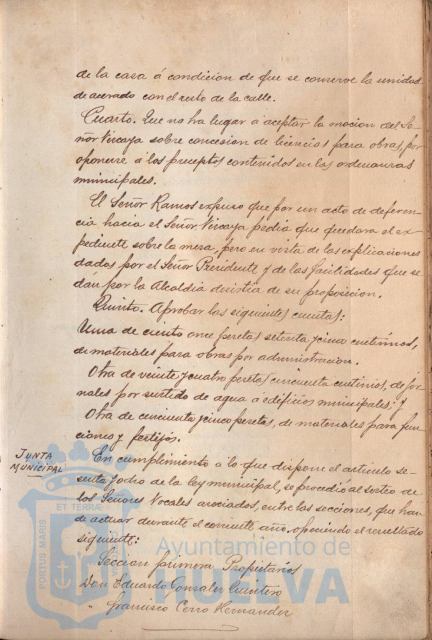 de la casa á condicion de que se conserve la unidad
de acerado con el resto de la calle.
Cuarto. Que no ha lugar á aceptar la mocion del Se-
ñor Vizcaya sobre concesion de licencias para obras, por
oponerse á los preceptos contenidos en las ordenanzas
municipales.
El Señor Ramos expuso que por un acto de deferen-
cia hacia el Señor Vizcaya pedia que quedara el ex-
pediente sobre la mesa, pero en vista de las explicaciones
dadas por el Señor Presidente y de las facilidades que se
dán por la Alcaldia desistia de su proposicion.
Quinto. Aprobar las siguientes cuentas:
Una de ciento once pesetas setenta y cinco centimos,
de materiales para obras por administracion.
Otra de veinte y cuatro pesetas cincuenta centimos, de jor-
nales por surtido de agua á edificios municipales; y
Otra de cincuenta y cinco pesetas, de materiales para fun-
ciones y festejos.
JUNTA
MUNICIPAL
En cumplimiento á lo que dispone el articulo se-
senta y ocho de la ley municipal, se procedió al sorteo de
los Señores Vocales asociados, entre las secciones, que han
de actuar durante el corriente año, ofreciendo el resultado
siguiente:
Seccion primera Propietarios
Don Eduardo Gonzalez Quintero
" Francisco Cerro Hernandez
PORTUS MARIS
ET TERRAE
Ayuntamiento de
HUELVA